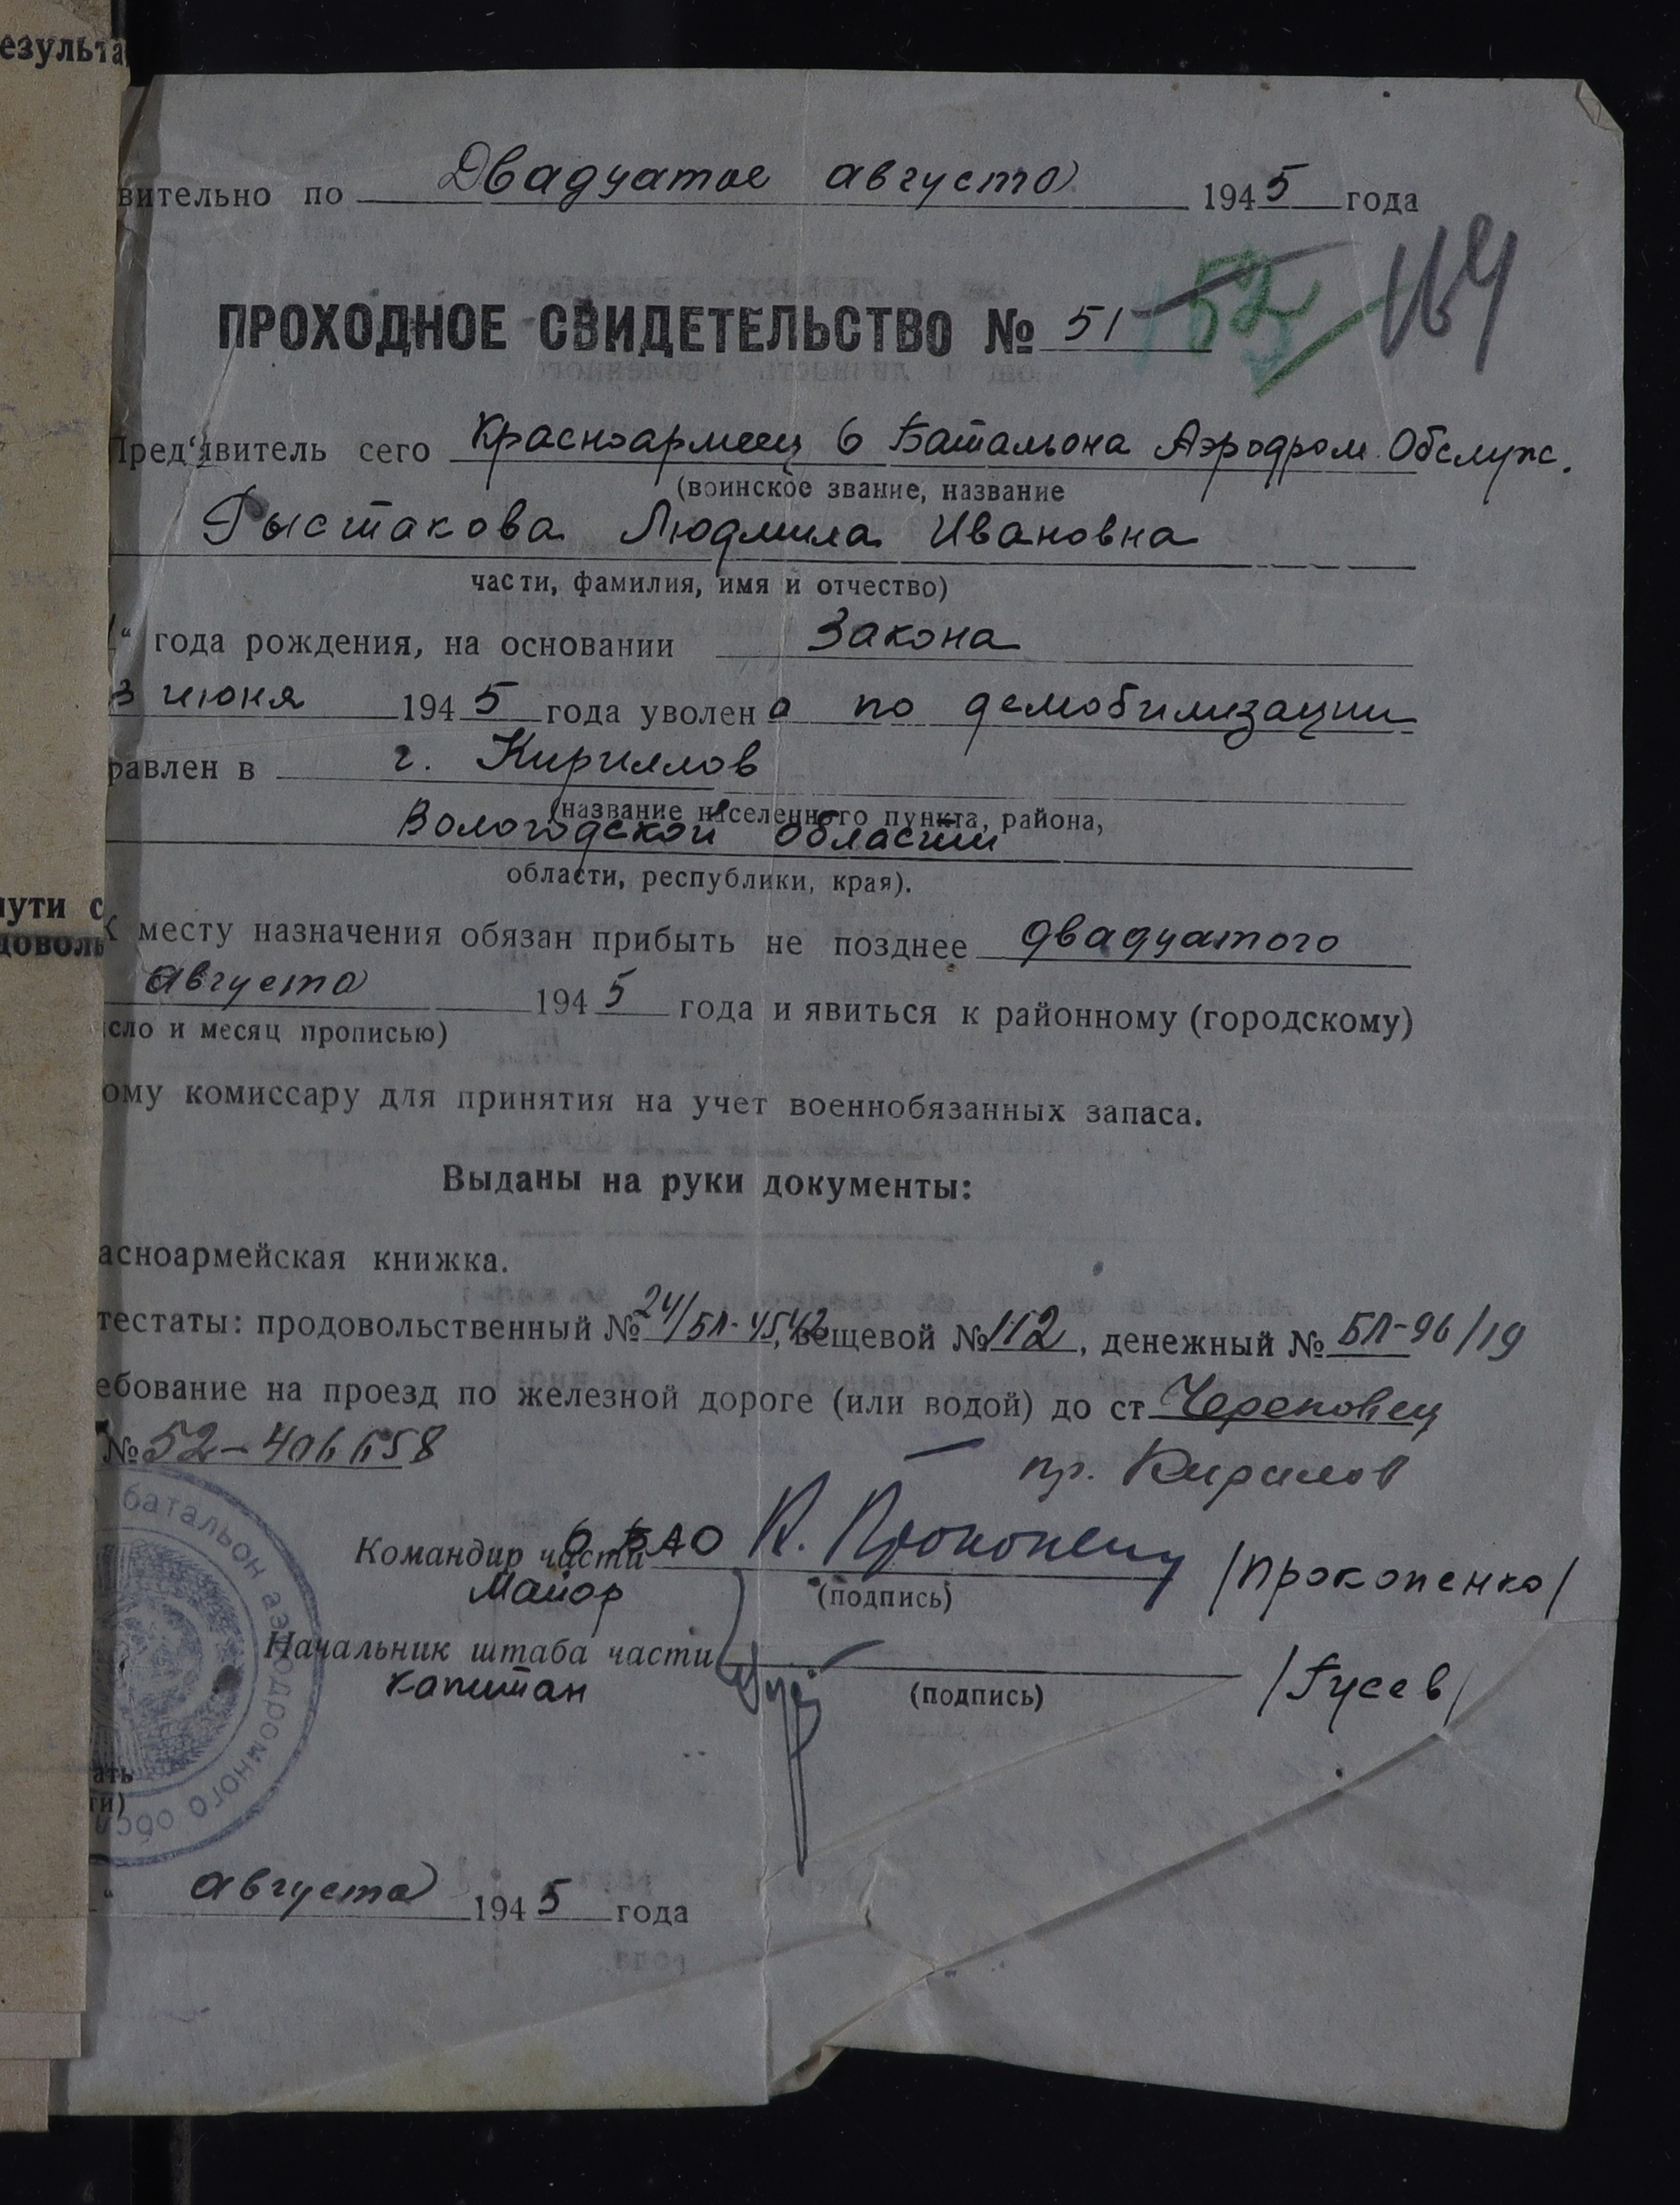 езульта
вительно по Двадцатое августа 1945 года
ПРОХОДНОЕ СВИДЕТЕЛЬСТВО № 51 52 164
Пред'явитель сего Красноармеец 6 Батальона Аэродром. Обслуж.
(воинское звание, название
Рыстакова Людмила Ивановна
части, фамилия, имя и отчество)
“ года рождения, на основании Закона
3 июня 1945 года уволена по демобилизации
равлен в г. Кириллов
(название населенного пункта, района,
Вологодской области
области, республики, края).
пути с
К месту назначения обязан прибыть не позднее двадцатого
доволь
августа 1945 года и явиться к районному (городскому)
сло и месяц прописью)
ому комиссару для принятия на учет военнобязанных запаса.
Выданы на руки документы:
асноармейская книжка.
тестаты: продовольственный № 24/БЛ-4542, вещевой № 112, денежный № БЛ-96/19
ебование на проезд по железной дороге (или водой) до ст Череповец
№ 52-406658
пр. Кирилов
батальон аэродромного обс
Командир части 6 БАО К. Прокопенко /Прокопенко/
Майор (подпись)
Начальник штаба части /Гусев/
капитан (подпись)
ать
ти)
“ августа 1945 года